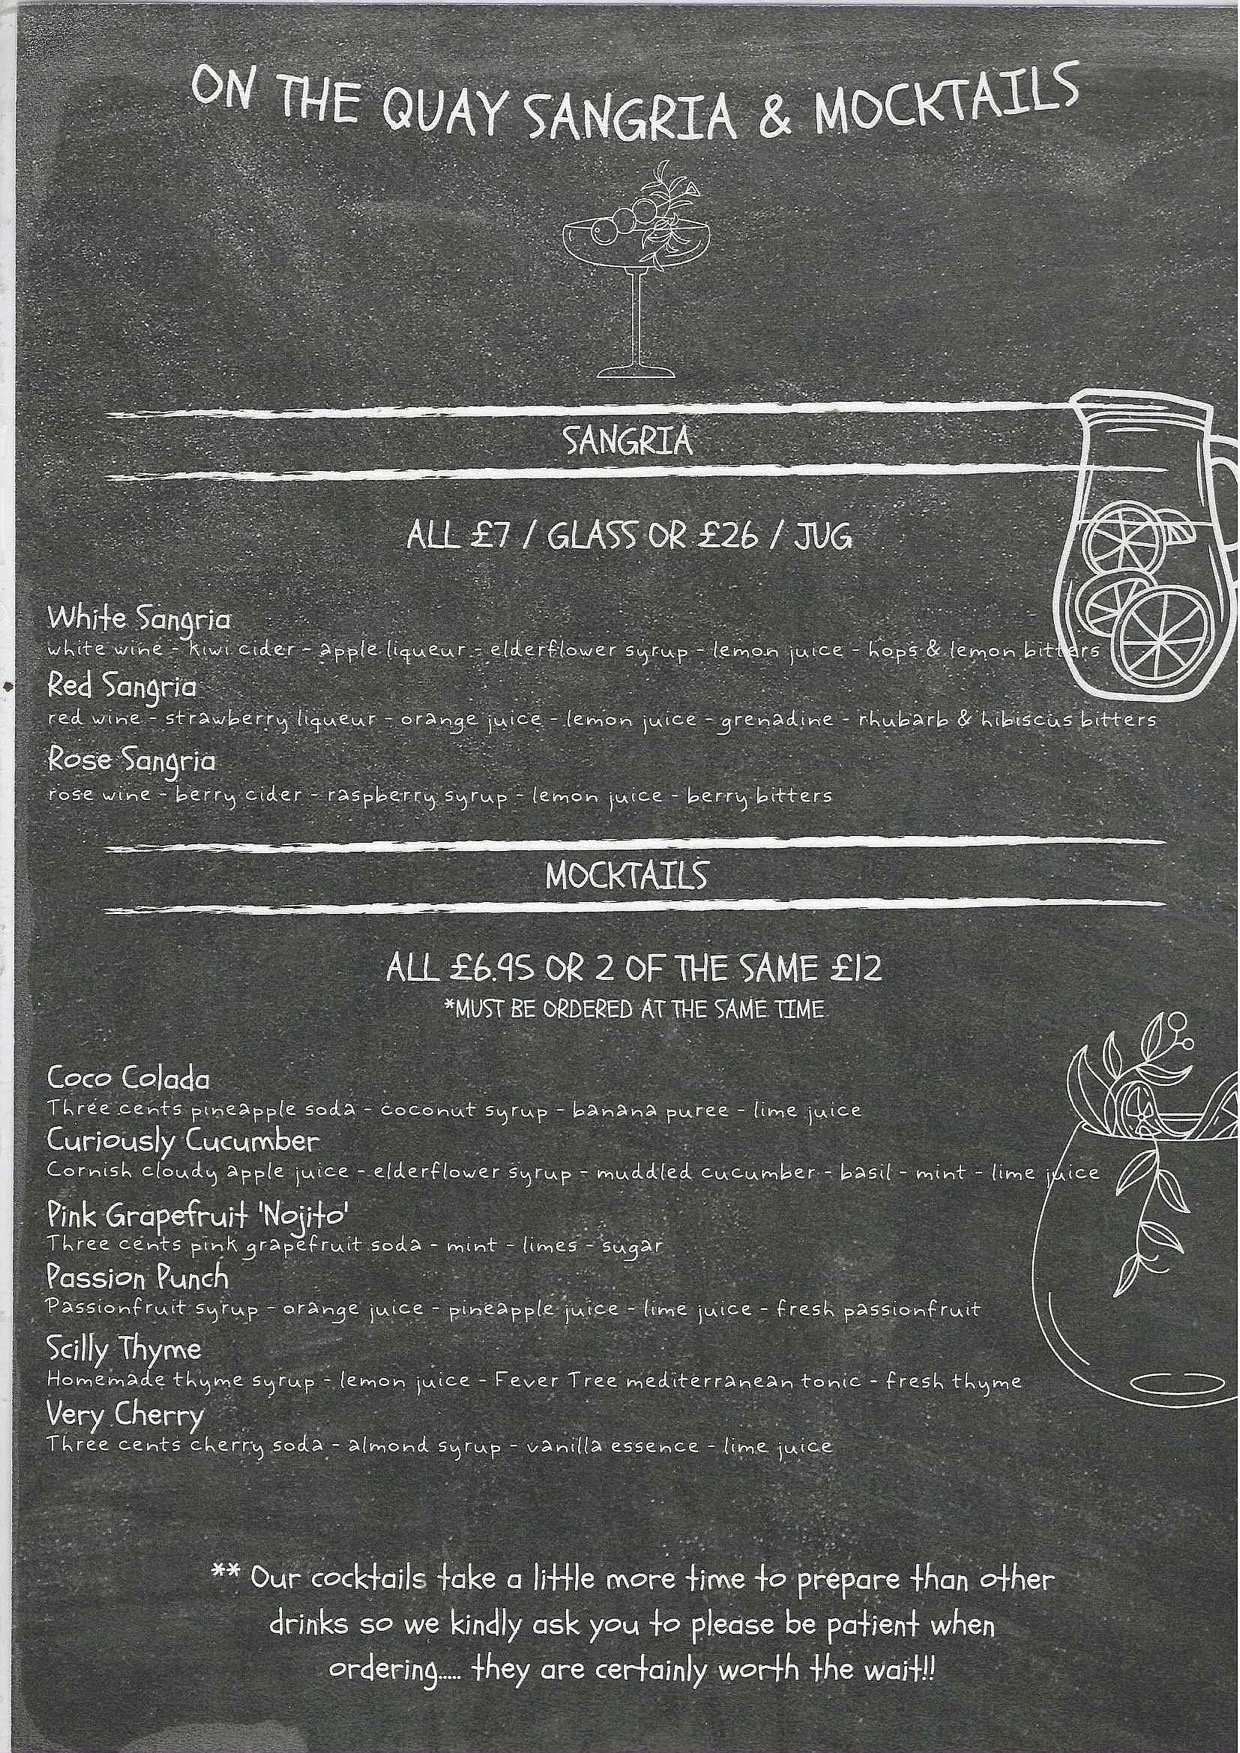 ON THE QUAY SANGRIA & MOCKTAILS
SANGRIA
ALL £7 / GLASS OR £26 / JUG
White Sangria
white wine - kiwi cider - apple liqueur - elderflower syrup - lemon juice - hops & lemon bitters
Red Sangria
red wine - strawberry liqueur - orange juice - lemon juice - grenadine - rhubarb & hibiscus bitters
Rose Sangria
rose wine - berry cider - raspberry syrup - lemon juice - berry bitters
MOCKTAILS
ALL £6.95 OR 2 OF THE SAME £12
*MUST BE ORDERED AT THE SAME TIME
Coco Colada
Three cents pineapple soda - coconut syrup - banana puree - lime juice
Curiously Cucumber
Cornish cloudy apple juice - elderflower syrup - muddled cucumber - basil - mint - lime juice
Pink Grapefruit 'Nojito'
Three cents pink grapefruit soda - mint - limes - sugar
Passion Punch
Passionfruit syrup - orange juice - pineapple juice - lime juice - fresh passionfruit
Scilly Thyme
Homemade thyme syrup - lemon juice - Fever Tree mediterranean tonic - fresh thyme
Very Cherry
Three cents cherry soda - almond syrup - vanilla essence - lime juice
** Our cocktails take a little more time to prepare than other
drinks so we kindly ask you to please be patient when
ordering..... they are certainly worth the wait!!